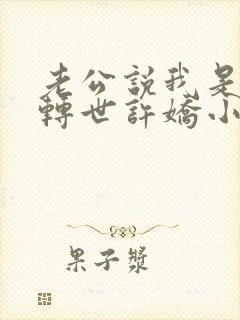 老公説我是
轉世許嬌小
果子漿